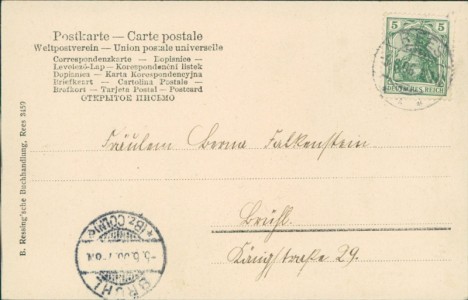 Postkarte — Carte postale
Weltpostverein — Union postale universelle
Correspondenzkarte — Dopisnice —
Levelező-Lap — Korespondenční lístek
Dopisnica — Karta Korespondencyjna
Briefkaart — Cartolina Postale —
Brefkort — Tarjeta Postal — Postcard
ОТКРЫТОЕ ПИСЬМО
5 5
DEUTSCHES REICH
B. Ressing'sche Buchhandlung, Rees 3459
Fräulein Berna Falkenstein
Brühl.
Königstraße 29.
(Bz. CÖLN)
BRÜHL